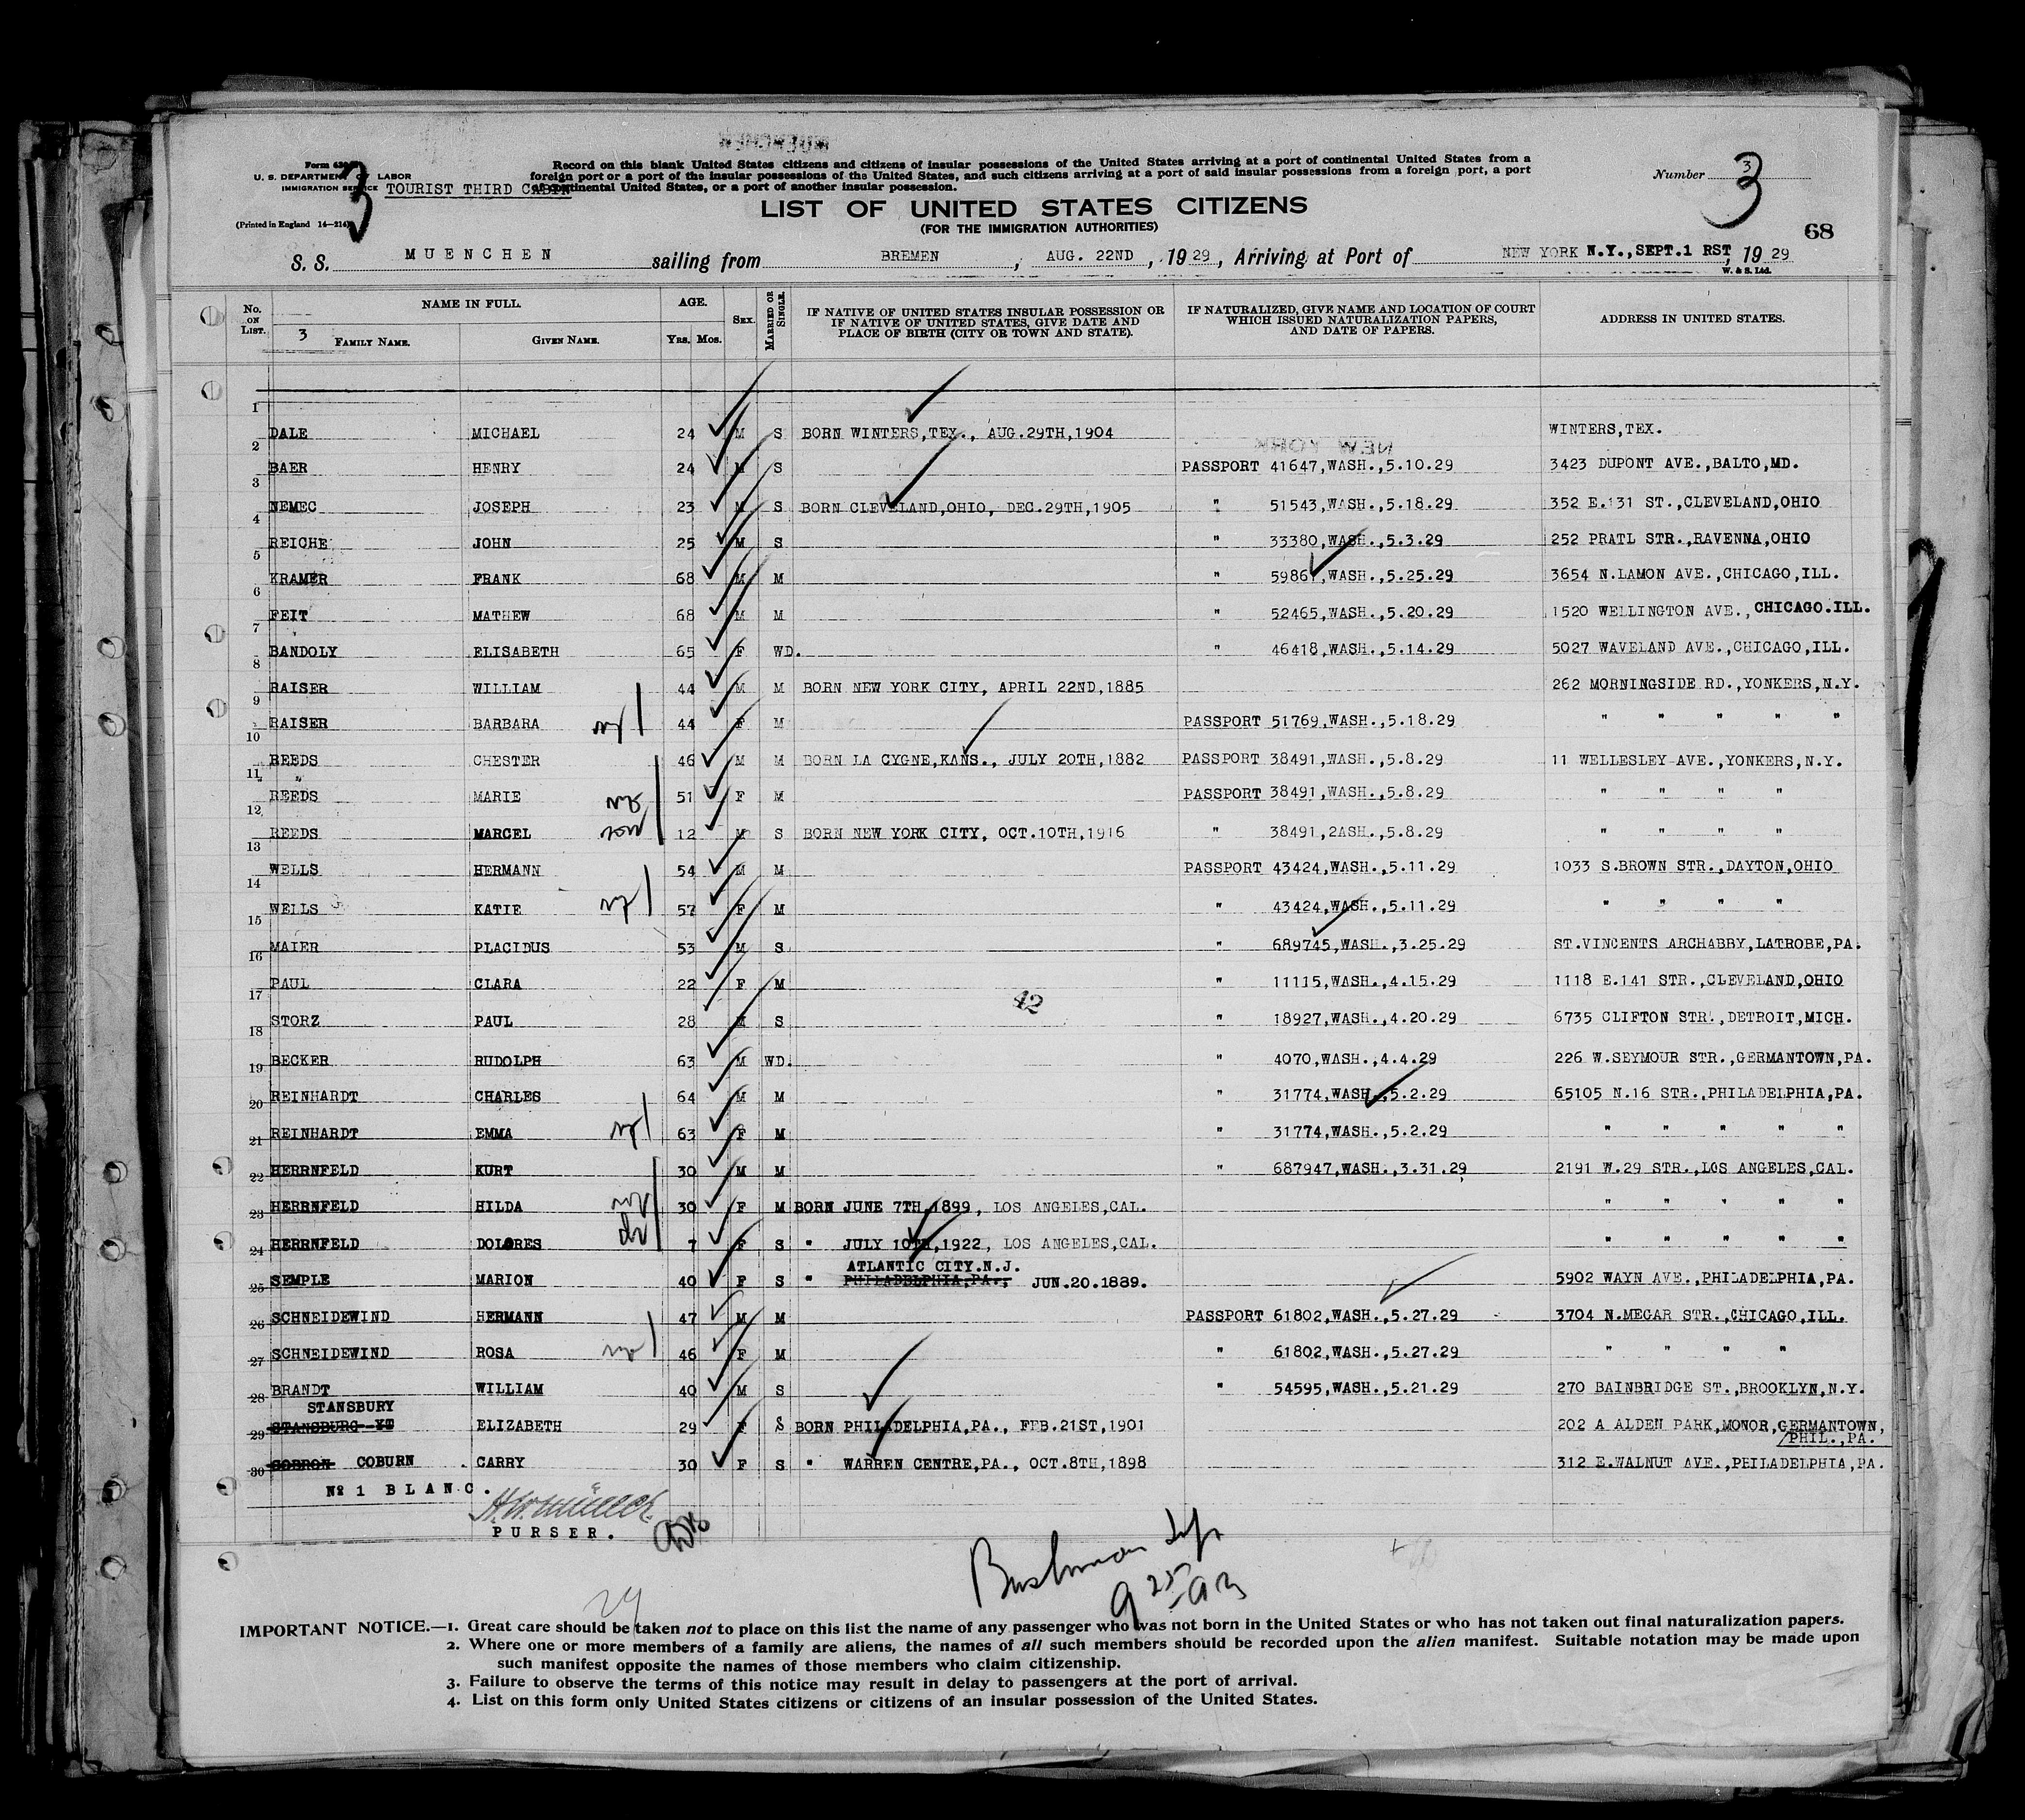 MUENCHEN
Form 630
U. S. DEPARTMENT OF LABOR
IMMIGRATION SERVICE
TOURIST THIRD CABIN
(Printed in England 14—214)
3
Record on this blank United States citizens and citizens of insular possessions of the United States arriving at a port of continental United States from a
foreign port or a port of the insular possessions of the United States, and such citizens arriving at a port of said insular possessions from a foreign port, a port
of continental United States, or a port of another insular possession.
Number 3
3
LIST OF UNITED STATES CITIZENS
(FOR THE IMMIGRATION AUTHORITIES)
68
S. S. MUENCHEN sailing from BREMEN, AUG. 22ND, 1929, Arriving at Port of NEW YORK N.Y., SEPT.1 RST, 1929
W. & S. Ltd.
No. ON LIST. NAME IN FULL. 3 FAMILY NAME. GIVEN NAME. AGE. YRS. MOS. SEX. MARRIED OR SINGLE. IF NATIVE OF UNITED STATES INSULAR POSSESSION OR IF NATIVE OF UNITED STATES, GIVE DATE AND PLACE OF BIRTH (CITY OR TOWN AND STATE). IF NATURALIZED, GIVE NAME AND LOCATION OF COURT WHICH ISSUED NATURALIZATION PAPERS, AND DATE OF PAPERS. ADDRESS IN UNITED STATES.
1
2 DALE MICHAEL 24 M S BORN WINTERS,TEX., AUG.29TH,1904 WINTERS,TEX.
NEW YORK
3 BAER HENRY 24 M S PASSPORT 41647,WASH.,5.10.29 3423 DUPONT AVE.,BALTO,MD.
4 NEMEC JOSEPH 23 M S BORN CLEVELAND,OHIO, DEC.29TH,1905 " 51543,WASH.,5.18.29 352 E.131 ST.,CLEVELAND,OHIO
5 REICHE JOHN 25 M S " 33380,WASH.,5.3.29 252 PRATL STR.,RAVENNA,OHIO
6 KRAMER FRANK 68 M M " 59861,WASH.,5.25.29 3654 N.LAMON AVE.,CHICAGO,ILL.
7 FEIT MATHEW 68 M M " 52465,WASH.,5.20.29 1520 WELLINGTON AVE.,CHICAGO.ILL.
8 BANDOLY ELISABETH 65 F WD. " 46418,WASH.,5.14.29 5027 WAVELAND AVE.,CHICAGO,ILL.
9 RAISER WILLIAM 44 M M BORN NEW YORK CITY, APRIL 22ND,1885 262 MORNINGSIDE RD.,YONKERS,N.Y.
10 RAISER BARBARA 44 F M PASSPORT 51769,WASH.,5.18.29 " " " " "
11 REEDS CHESTER 46 M M BORN LA CYGNE,KANS., JULY 20TH,1882 PASSPORT 38491,WASH.,5.8.29 11 WELLESLEY AVE.,YONKERS,N.Y.
12 REEDS MARIE 51 F M PASSPORT 38491,WASH.,5.8.29 " " " "
13 REEDS MARCEL son 12 M S BORN NEW YORK CITY, OCT.10TH,1916 " 38491,2ASH.,5.8.29 " " " "
14 WELLS HERMANN 54 M M PASSPORT 43424,WASH.,5.11.29 1033 S.BROWN STR.,DAYTON,OHIO
15 WELLS KATIE 57 F M " 43424,WASH.,5.11.29 " " " "
16 MAIER PLACIDUS 53 M S " 689745,WASH.,3.25.29 ST.VINCENTS ARCHABBY,LATROBE,PA.
17 PAUL CLARA 22 F M " 11115,WASH.,4.15.29 1118 E.141 STR.,CLEVELAND,OHIO
42
18 STORZ PAUL 28 M S " 18927,WASH.,4.20.29 6735 CLIFTON STR.,DETROIT,MICH.
19 BECKER RUDOLPH 63 M WD. " 4070,WASH.,4.4.29 226 W.SEYMOUR STR.,GERMANTOWN,PA.
20 REINHARDT CHARLES 64 M M " 31774,WASH.,5.2.29 65105 N.16 STR.,PHILADELPHIA,PA.
21 REINHARDT EMMA 63 F M " 31774,WASH.,5.2.29 " " " " "
22 HERRNFELD KURT 30 M M " 687947,WASH.,3.31.29 2191 W.29 STR.,LOS ANGELES,CAL.
23 HERRNFELD HILDA 30 F M BORN JUNE 7TH,1899, LOS ANGELES,CAL. " " " " "
24 HERRNFELD DOLORES 7 F S " JULY 10TH,1922, LOS ANGELES,CAL. " " " " "
ATLANTIC CITY.N.J.
25 SEMPLE MARION 40 F S " PHILADELPHIA,PA., JUN.20.1889. 5902 WAYN AVE.,PHILADELPHIA,PA.
26 SCHNEIDEWIND HERMANN 47 M M PASSPORT 61802,WASH.,5.27.29 3704 N.MEGAR STR.,CHICAGO,ILL.
27 SCHNEIDEWIND ROSA 46 F M " 61802,WASH.,5.27.29 " " " "
28 BRANDT WILLIAM 40 M S " 54595,WASH.,5.21.29 270 BAINBRIDGE ST.,BROOKLYN,N.Y.
STANSBURY
29 STANSBURG ELIZABETH 29 F S BORN PHILADELPHIA,PA., FEB.21ST,1901 202 A ALDEN PARK,MONOR,GERMANTOWN,
/PHIL.,PA.
30 COBRON COBURN CARRY 30 F S " WARREN CENTRE,PA., OCT.8TH,1898 312 E.WALNUT AVE.,PHILADELPHIA,PA.
No 1 BLANC.
PURSER.
Bushman
9 25
29
IMPORTANT NOTICE.—1. Great care should be taken not to place on this list the name of any passenger who was not born in the United States or who has not taken out final naturalization papers.
2. Where one or more members of a family are aliens, the names of all such members should be recorded upon the alien manifest. Suitable notation may be made upon
such manifest opposite the names of those members who claim citizenship.
3. Failure to observe the terms of this notice may result in delay to passengers at the port of arrival.
4. List on this form only United States citizens or citizens of an insular possession of the United States.